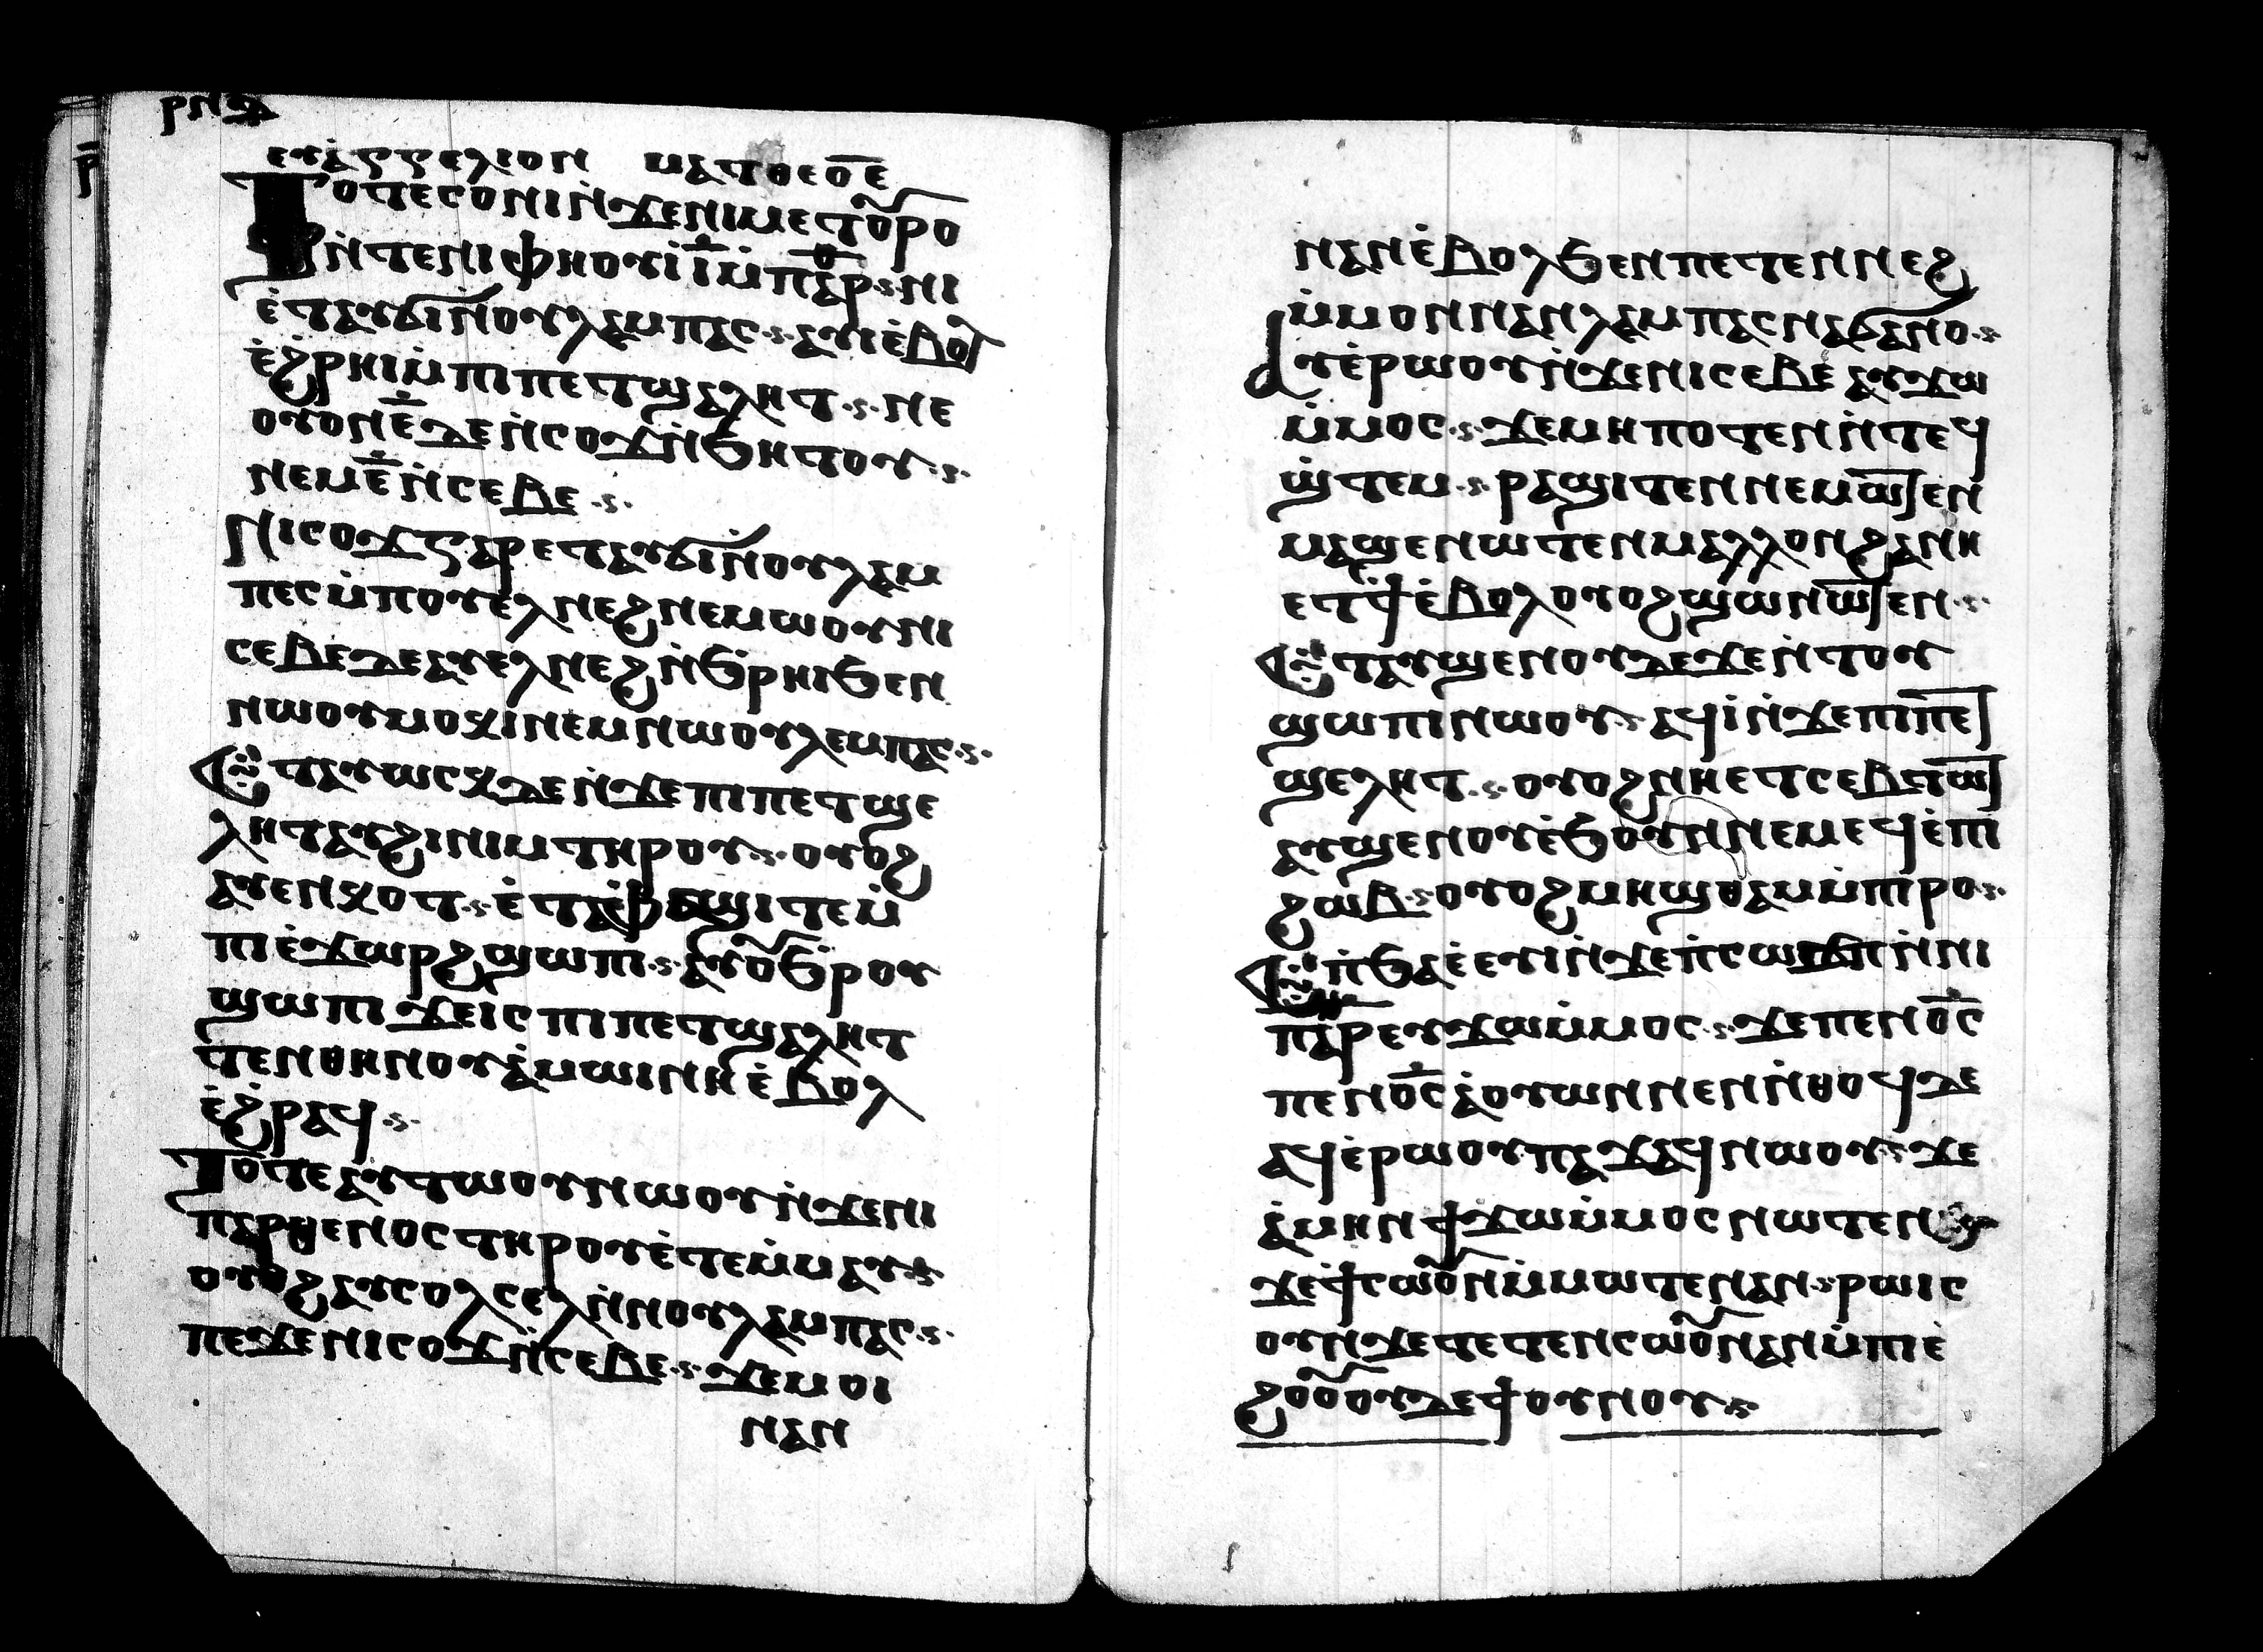 ⲣⲛⲋ
ⲉⲩⲁ̇ⲅⲅⲉⲗⲓⲟⲛ ⲙⲁⲧⲑⲉⲟ̅ⲉ̅
Ⲧⲟⲧⲉⲥⲟⲛⲓⲛ̇ϫⲉⲛⲓⲙⲉⲧⲟ̅ⲣⲟ
ⲛ̇ⲧⲉⲛⲓⲫⲏⲟⲩⲓ̇ⲓ̅ⲙ̇ⲡⲁⲣ·ⲥ·ⲛⲓ
ⲉ̇ⲧⲁⲩϭⲓⲛ̇ⲟⲩⲗⲁⲙⲡⲁⲥ·ⲥ·ⲁⲩⲓⲉ̇ⲃⲟⲗ
ⲉ̇ϩ̇ⲣⲏⲓⲙ̇ⲡⲓⲡⲉⲧϣⲁⲗⲏⲧ·ⲥ·ⲛⲉ
ⲟⲩⲟⲛⲉ̅ⲇⲉⲛ̇ⲥⲟϫⲛ̇ϧⲏⲧⲟⲩ·ⲥ·
ⲛⲉⲙⲉ̅ⲛ̇ⲥⲉⲃⲉ·ⲥ·
Ⲛⲓⲥⲟϫⲅⲁⲣⲉⲧⲁⲩϭⲓⲛ̇ⲟⲩⲗⲁⲙ
ⲡⲉⲥⲙ̇ⲡⲟⲩⲉⲗⲛⲉϩⲛⲉⲙⲱⲟⲩⲛⲓ
ⲥⲉⲃⲉⲇⲉⲁⲩⲉⲗⲛⲉϩⲛ̇ϧⲣⲏⲓϧⲉⲛ
ⲛⲱⲟⲩⲙⲟⲭⲓⲛⲉⲙⲛⲱⲟⲩⲗⲉⲙⲡⲁⲥ·ⲥ·
Ⲉⲧⲁⲩⲱⲥⲭⲇⲉⲛ̇ϫⲉⲡⲓⲡⲉⲧϣⲉ
ⲗⲏⲧⲁⲩϩⲓⲛⲓⲙⲧⲏⲣⲟⲩ·ⲥ·ⲟⲩⲟϩ
ⲁⲩⲉⲛⲭⲟⲧ·ⲥ·ⲉ̇ⲧⲁⲫⲁϣⲓⲧⲉⲙ̇
ⲡⲓⲉ̇ϫⲱⲣϩϣⲱⲡⲓ·ⲥ·ⲁⲩⲟ̅ϧⲣⲟⲩ
ϣⲱⲡⲓϫⲉⲓⲥⲡⲓⲡⲉⲧϣⲁⲗⲏⲧ
ⲧⲉⲛⲑⲏⲛⲟⲩⲁ̇ⲙⲱⲓⲛⲏⲉ̇ⲃⲟⲗ
ⲉ̇ϩ̇ⲣⲁϥ·ⲥ·
Ⲧⲟⲧⲉⲁⲩⲧⲱⲟⲩⲛⲱⲟⲩⲛ̇ϫⲉⲛⲓ
ⲡⲁⲣⲑⲉⲛⲟⲥⲧⲏⲣⲟⲩⲉ̇ⲧⲉⲙ̇ⲙⲁⲩ·ⲥ·
ⲟⲩⲟϩⲁⲩⲥⲟⲗⲥⲉⲗⲛ̇ⲛⲟⲩⲗⲁⲙⲡⲁⲥ·ⲥ·
ⲡⲉϫⲉⲛⲓⲥⲟϫⲛ̇ⲥⲉⲃⲉ·ⲥ·ϫⲉⲙⲟⲓ
ⲛⲁⲛ
ⲛⲁⲛⲉ̇ⲃⲟⲗϧⲉⲛⲡⲉⲧⲉⲛⲛⲉϩ
ⲙ̇ⲙⲟⲛⲛⲁⲛⲗⲁⲙⲡⲁⲥⲛⲁϭⲁⲛⲟ·ⲥ·
Ⲁⲩⲉ̇ⲣⲱⲟⲩⲛ̇ϫⲉⲛⲓⲥⲉⲃⲉ̇ⲁⲩϫⲱ
ⲙ̇ⲙⲟⲥ·ⲥ·ϫⲉⲙⲏⲡⲟⲧⲉⲛⲛ̇ⲧⲉϥ
ϣ̇ⲧⲉⲙ·ⲥ·ⲣⲁϣⲓⲧⲉⲛⲛⲉⲙⲱ̅ⲧⲉⲛ
ⲙⲁϣⲉⲛⲱⲧⲉⲛⲙⲁⲗⲗⲟⲛϩⲁⲛⲏ
ⲉⲧϯⲉ̇ⲃⲟⲗⲟⲩⲟϩϣⲱⲛⲱ̅ⲧⲉⲛ·ⲥ·
Ⲉⲧⲁⲩϣⲉⲛⲟⲩⲇⲉϫⲉⲛ̇ⲧⲟⲩ
ϣⲱⲡⲓⲛⲱⲟⲩ·ⲥ·ⲁϥⲓ̇ⲛ̇ϫⲉⲡⲓⲡⲉ̅ⲧ
ϣⲉⲗⲏⲧ·ⲥ·ⲟⲩⲟϩⲛⲏⲉⲧⲥⲉⲃⲧⲱ̅ⲧ
ⲁⲩϣⲉⲛⲟⲩⲉ̇ϧⲟⲩⲛⲛⲉⲙⲉϥⲉ̇ⲡⲓ
ϩⲱⲃ·ⲥ·ⲟⲩⲟϩⲙⲏϣⲑⲁⲙⲙ̇ⲡⲓⲣⲟ·ⲥ·
Ⲉⲡ̇ϧⲁⲉ̇ⲉⲩⲓⲛ̇ϫⲉⲡ̇ⲥⲱϫⲡⲛ̇ⲛⲓ
ⲡⲁⲣⲉⲩϫⲱⲙ̇ⲙⲟⲥ·ⲥ·ϫⲉⲡⲉⲛⲟ̅ⲥ̅
ⲡⲉⲛⲟ̅ⲥ̅ⲁ̇ⲟⲩⲱⲛⲛⲉⲛⲛ̇ⲑⲟϥⲇⲉ
ⲁϥⲉ̇ⲣⲱⲟⲩⲡⲁϫⲁϥⲛⲱⲟⲩ·ⲥ·ϫⲉ
ⲁ̇ⲙⲏⲛϯϫⲱⲙ̇ⲙⲟⲥⲛⲱⲧⲉⲛ
ϫⲉϯⲥⲱⲟ̅ⲛⲙ̇ⲙⲱⲧⲉⲛⲁⲛ·ⲥ·ⲣⲱⲓⲥ
ⲟⲩⲛϫⲉⲧⲉⲧⲉⲛⲥⲱⲟ̅ⲛⲁⲛⲙ̇ⲡⲓⲉ̇
ϩⲟⲟ̅ⲟⲩⲇⲉϯⲟⲩⲛⲟⲩ·ⲥ·